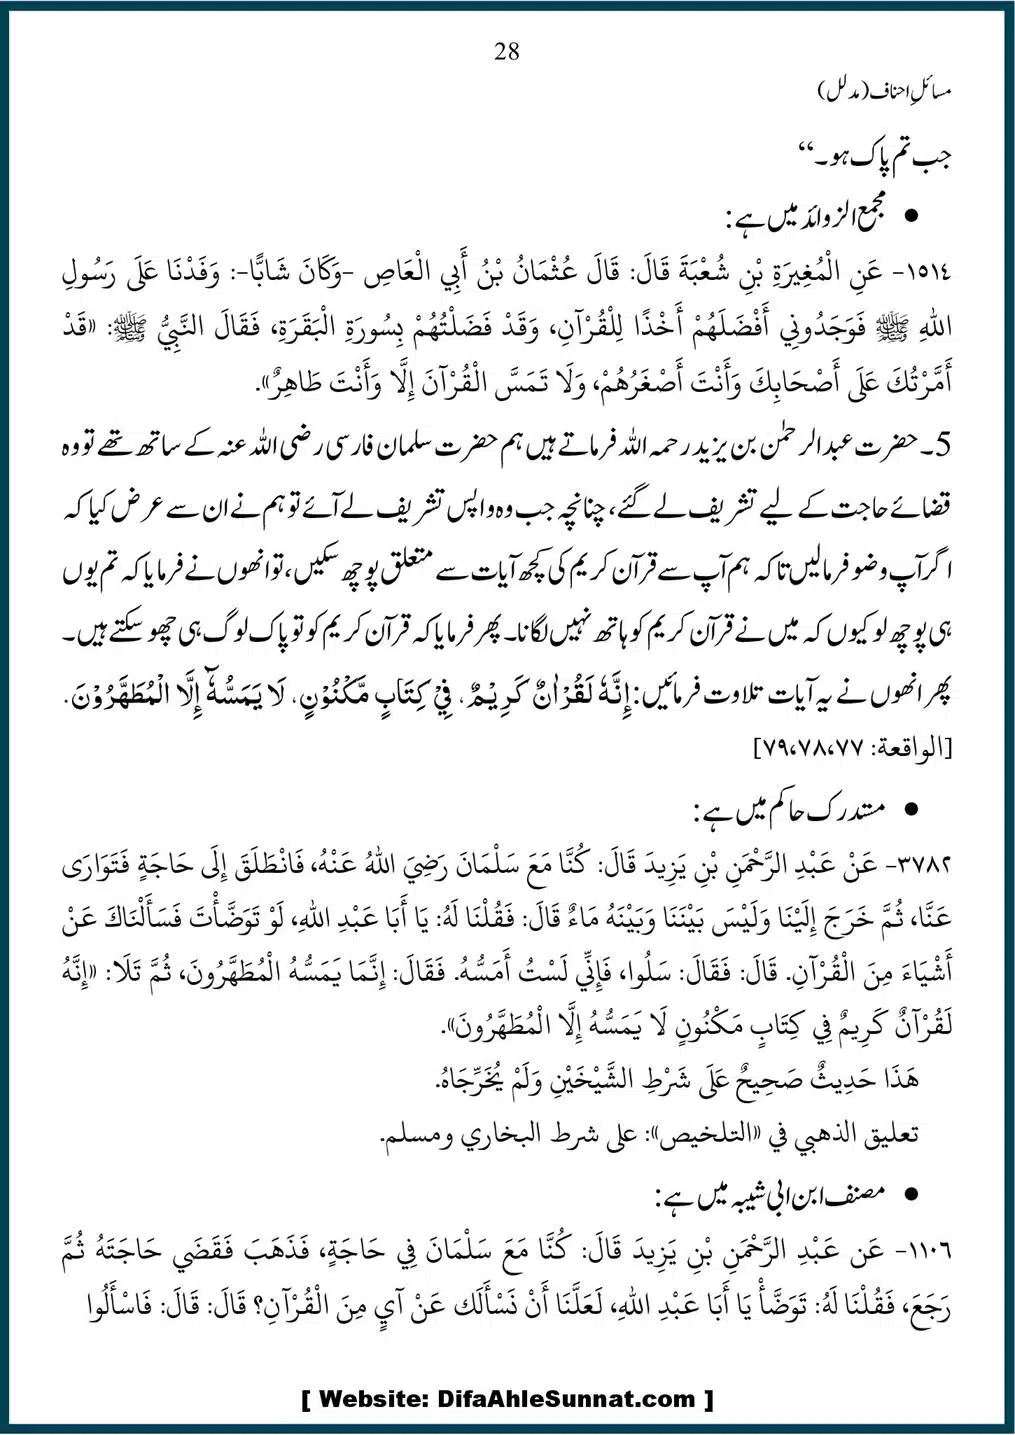 28
مسائلِ احناف (مدلل)
جب تم پاک ہو۔‘‘
• مجمع الزوائد میں ہے:
١٥١٤- عَنِ الْمُغِيرَةِ بْنِ شُعْبَةَ قَالَ: قَالَ عُثْمَانُ بْنُ أَبِي الْعَاصِ -وَكَانَ شَابًّا-: وَفَدْنَا عَلَى رَسُولِ
اللهِ ﷺ فَوَجَدُونِي أَفْضَلَهُمْ أَخْذًا لِلْقُرْآنِ، وَقَدْ فَضَلْتُهُمْ بِسُورَةِ الْبَقَرَةِ، فَقَالَ النَّبِيُّ ﷺ: «قَدْ
أَمَّرْتُكَ عَلَى أَصْحَابِكَ وَأَنْتَ أَصْغَرُهُمْ، وَلَا تَمَسَّ الْقُرْآنَ إِلَّا وَأَنْتَ طَاهِرٌ».
5۔ حضرت عبد الرحمٰن بن یزید رحمہ اللہ فرماتے ہیں ہم حضرت سلمان فارسی رضی اللہ عنہ کے ساتھ تھے تو وہ
قضائے حاجت کے لیے تشریف لے گئے، چنانچہ جب وہ واپس تشریف لے آئے تو ہم نے ان سے عرض کیا کہ
اگر آپ وضو فرمالیں تاکہ ہم آپ سے قرآن کریم کی کچھ آیات سے متعلق پوچھ سکیں، تو انھوں نے فرمایا کہ تم یوں
ہی پوچھ لو کیوں کہ میں نے قرآن کریم کو ہاتھ نہیں لگانا۔ پھر فرمایا کہ قرآن کریم کو تو پاک لوگ ہی چھو سکتے ہیں۔
پھر انھوں نے یہ آیات تلاوت فرمائیں: إِنَّهٗ لَقُرْاٰنٌ كَرِيْمٌ. فِيْ كِتَابٍ مَّكْنُوْنٍ. لَا يَمَسُّهٗٓ إِلَّا الْمُطَهَّرُوْنَ.
[الواقعة: ٧٧،٧٨،٧٩]
• مستدرک حاکم میں ہے:
٣٧٨٢- عَنْ عَبْدِ الرَّحْمَنِ بْنِ يَزِيدَ قَالَ: كُنَّا مَعَ سَلْمَانَ رَضِيَ اللهُ عَنْهُ، فَانْطَلَقَ إِلَى حَاجَةٍ فَتَوَارَى
عَنَّا، ثُمَّ خَرَجَ إِلَيْنَا وَلَيْسَ بَيْنَنَا وَبَيْنَهُ مَاءٌ قَالَ: فَقُلْنَا لَهُ: يَا أَبَا عَبْدِ اللهِ، لَوْ تَوَضَّأْتَ فَسَأَلْنَاكَ عَنْ
أَشْيَاءَ مِنَ الْقُرْآنِ. قَالَ: فَقَالَ: سَلُوا، فَإِنِّي لَسْتُ أَمَسُّهُ. فَقَالَ: إِنَّمَا يَمَسُّهُ الْمُطَهَّرُونَ، ثُمَّ تَلَا: «إِنَّهُ
لَقُرْآنٌ كَرِيمٌ فِي كِتَابٍ مَكْنُونٍ لَا يَمَسُّهُ إِلَّا الْمُطَهَّرُونَ».
هَذَا حَدِيثٌ صَحِيحٌ عَلَى شَرْطِ الشَّيْخَيْنِ وَلَمْ يُخَرِّجَاهُ.
تعليق الذهبي في «التلخيص»: على شرط البخاري ومسلم.
• مصنف ابن ابی شیبہ میں ہے:
١١٠٦- عَن عَبْدِ الرَّحْمَنِ بْنِ يَزِيدَ قَالَ: كُنَّا مَعَ سَلْمَانَ فِي حَاجَةٍ، فَذَهَبَ فَقَضَى حَاجَتَهُ ثُمَّ
رَجَعَ، فَقُلْنَا لَهُ: تَوَضَّأْ يَا أَبَا عَبْدِ اللهِ، لَعَلَّنَا أَنْ نَسْأَلَك عَنْ آيٍ مِنَ الْقُرْآنِ؟ قَالَ: قَالَ: فَاسْأَلُوا
[ Website: DifaAhleSunnat.com ]